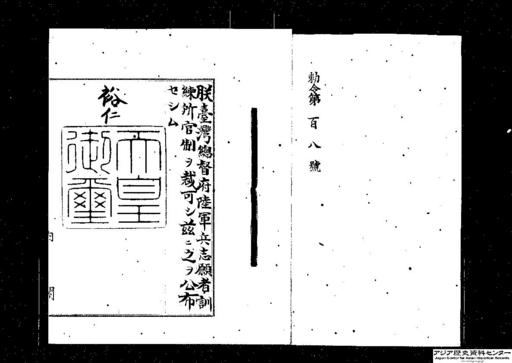 勅令第百八號
朕臺灣總督府陸軍兵志願者訓
練所官制ヲ裁可シ茲ニ之ヲ公布
セシム
裕仁
天皇
御璽
内閣
アジア歴史資料センター
Japan Center for Asian Historical Records